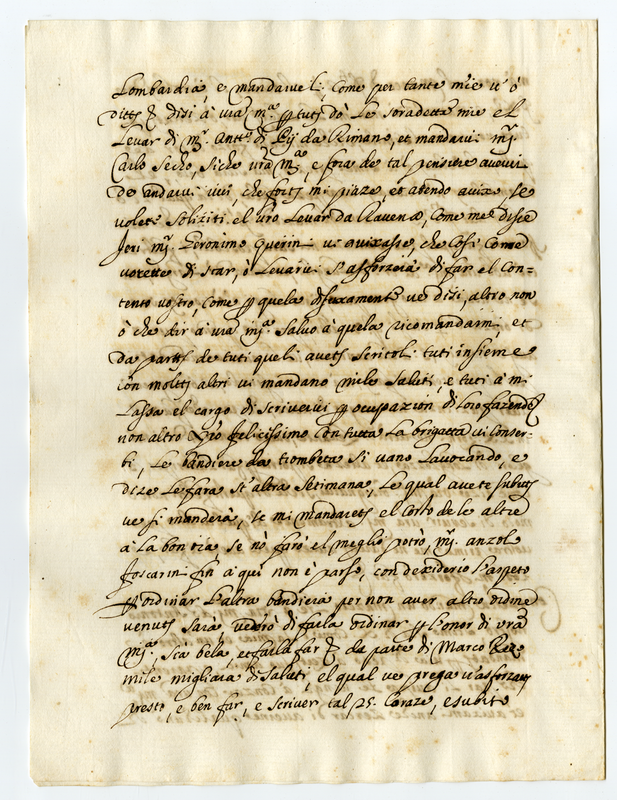 Lombardia, e mandarvel: Come per tante mie v'ò
ditto & disi à vra m.ª tuto dò Le soradette mie el
Levar di m.ʳ Antt.º di Pij da Rimano, et mandarvi m.ʳ
Carlo Secho, Siche vra m.ª, e fora de tal pensiere
De andarvi ivi, che forte mi piaze, et abendo avixo, se
volete Soliziti el vro Levar da Ravena, Come me disse
Jeri m.ʳ Geronimo Querin vi avixasse, che Cosi Come
vorette di star, ò Levarvi S'asforzeia di far el Con=
tento vostro, Come quela disuxamente ve disi, altro non
ò che dir à vra m.ª Salvo à quela ricomandarmi, et
da parte de tuti queli avete scritoli tuti insieme
con moltti altri vi mandano mile Saluti, e tuti à mi
Lassa el cargo di Scrivervi ocupazion di Loro fazende
non altro Xpo felicissimo con tutta La brigatta vi Conser=
bi, Le bandiere da trombeta Si vano Lavorando, e
dize Le fara st'altra Setimana, Le qual avete subito
ve si manderà, se mi mandarete el Costo de le altre
à La bon ora se nò farò el meglio potrò, m.ʳ anzolo
foscarin fin à qui non è parso, con dexiderio l'aspeto
ordinar l'altra bandiera per non aver altro ordine
venuto Sarà vederò di farla ordinar l'onor di vra
m.ª, Sia bela, et farla far & da parte di Marco
mile migliaia di Saluti, el qual ve prega v'asforzar
presto, e ben far, e scriver tal 25. Coraze, e subito